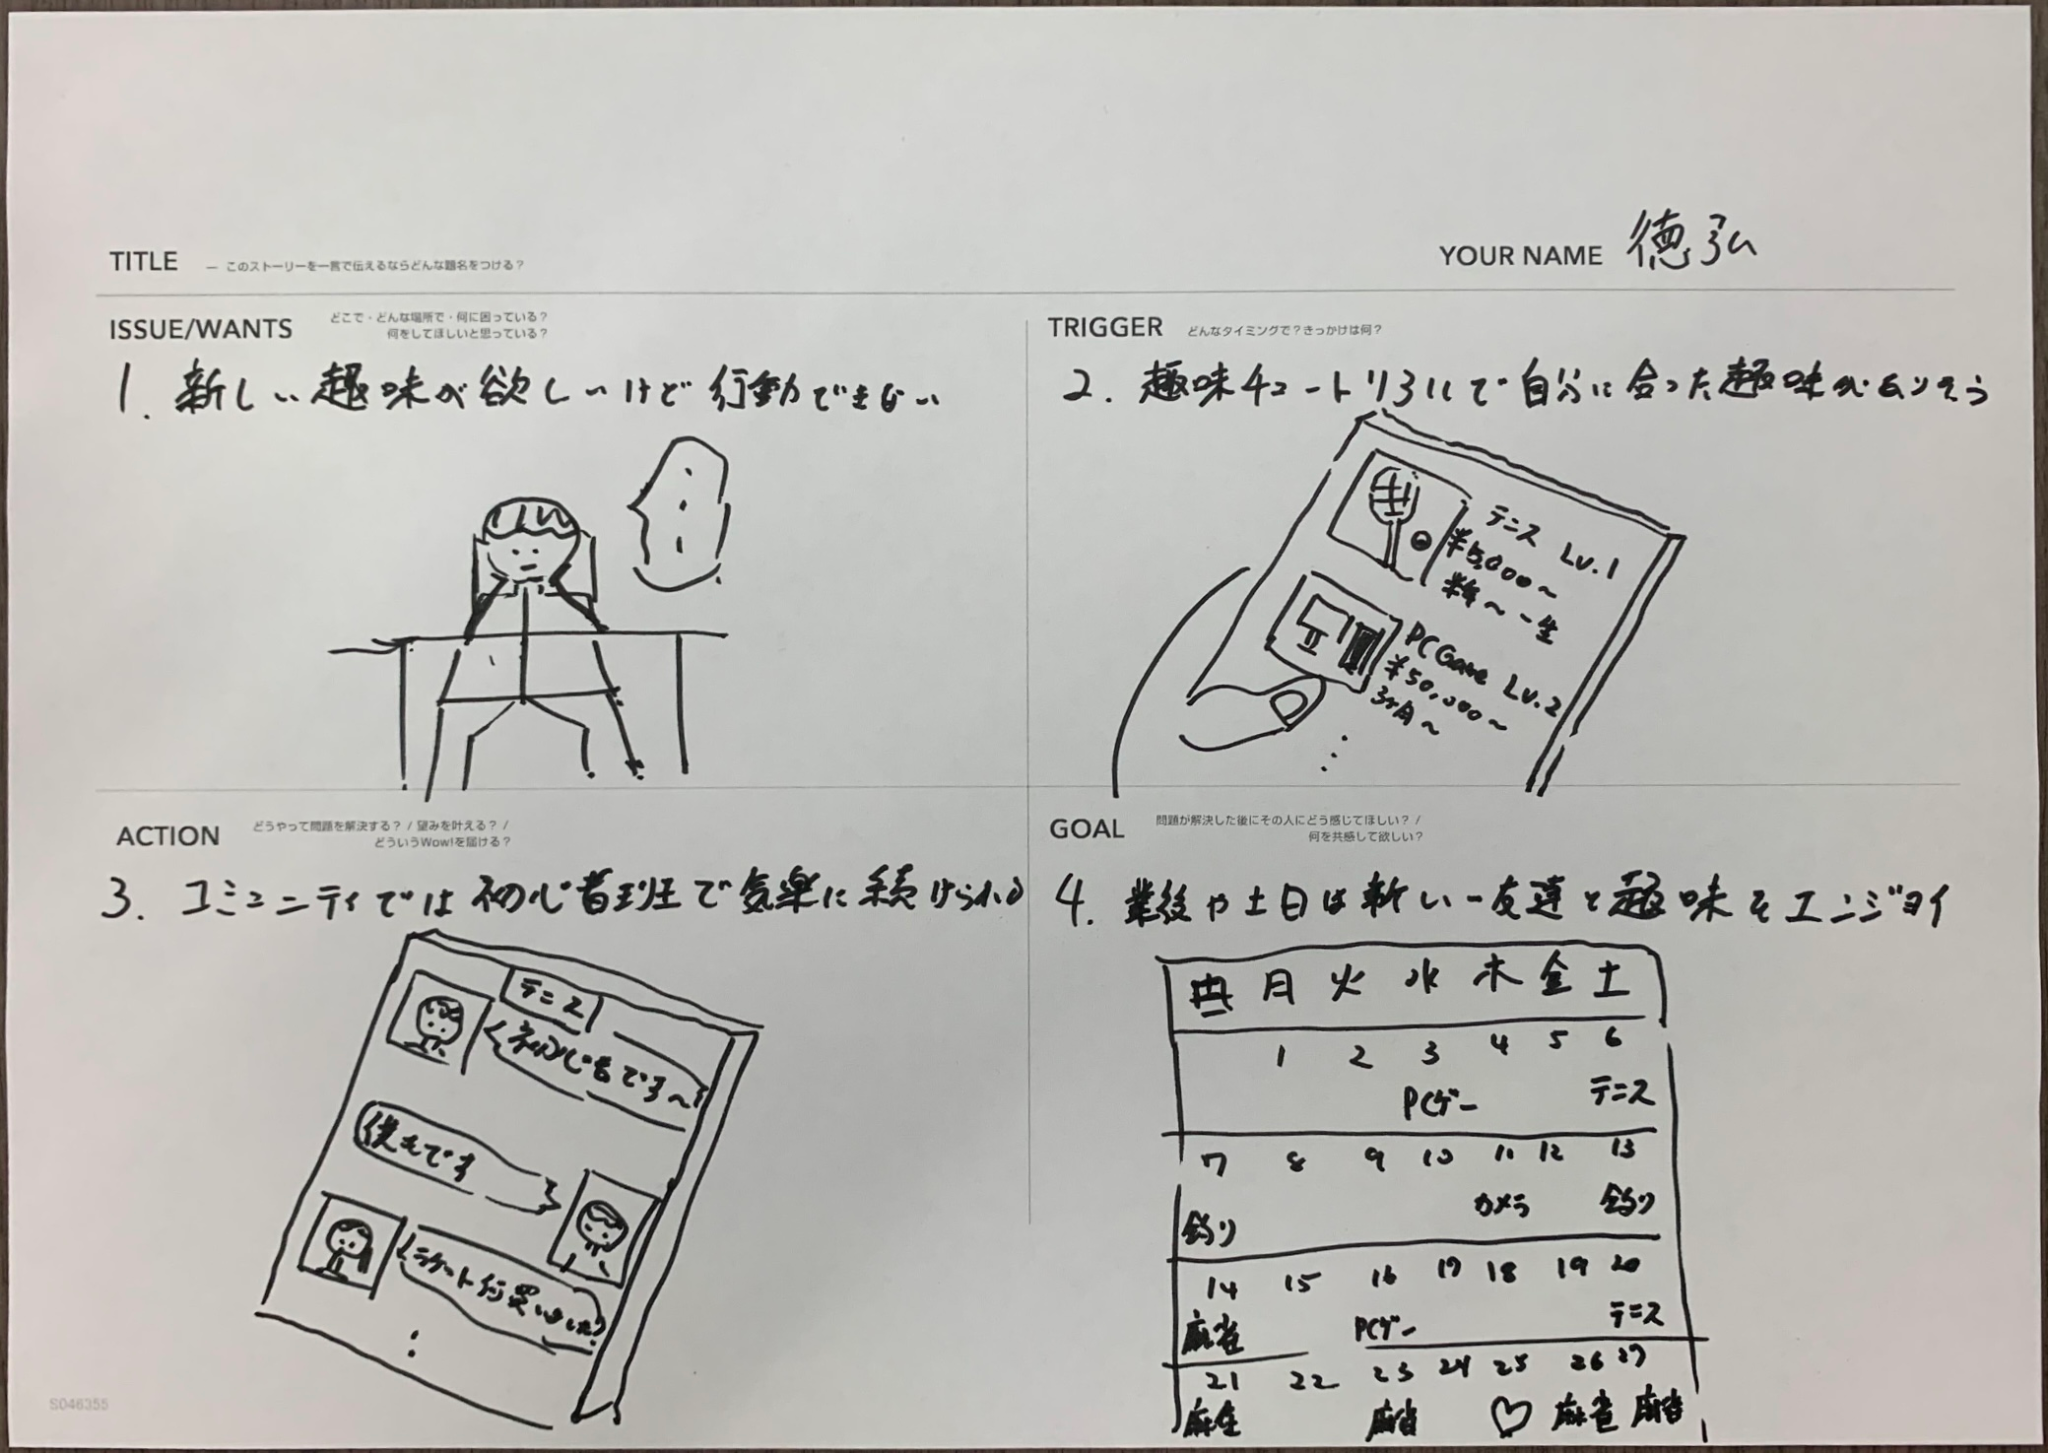 TITLE — このストーリーを一言で伝えるならどんな題名をつける?
YOUR NAME 徳弘
ISSUE/WANTS どこで・どんな場所で・何に困っている?
何をしてほしいと思っている?
1. 新しい趣味が欲しいけど行動できない
TRIGGER どんなタイミングで?きっかけは何?
2. 趣味チュートリアルで自分に合った趣味が
テニス Lv.1
¥5,000〜
半年〜一生
PC Game Lv.2
¥50,000〜
3ヶ月〜
ACTION どうやって問題を解決する? / 望みを叶える? /
どういうWow!を届ける?
3. コミュニティでは初心者班で気楽に続けられる
テニス
初心者です〜!
僕もです
ラケット
GOAL 問題が解決した後にその人にどう感じてほしい? /
何を共感して欲しい?
4. 業後や土日は新しい友達と趣味をエンジョイ
月 火 水 木 金 土
1 2 3 4 5 6
PCゲー テニス
7 8 9 10 11 12 13
釣り カメラ 釣り
14 15 16 17 18 19 20
麻雀 PCゲー テニス
21 22 23 24 25 26 27
麻雀 麻雀 ♡ 麻雀 麻雀
S046355